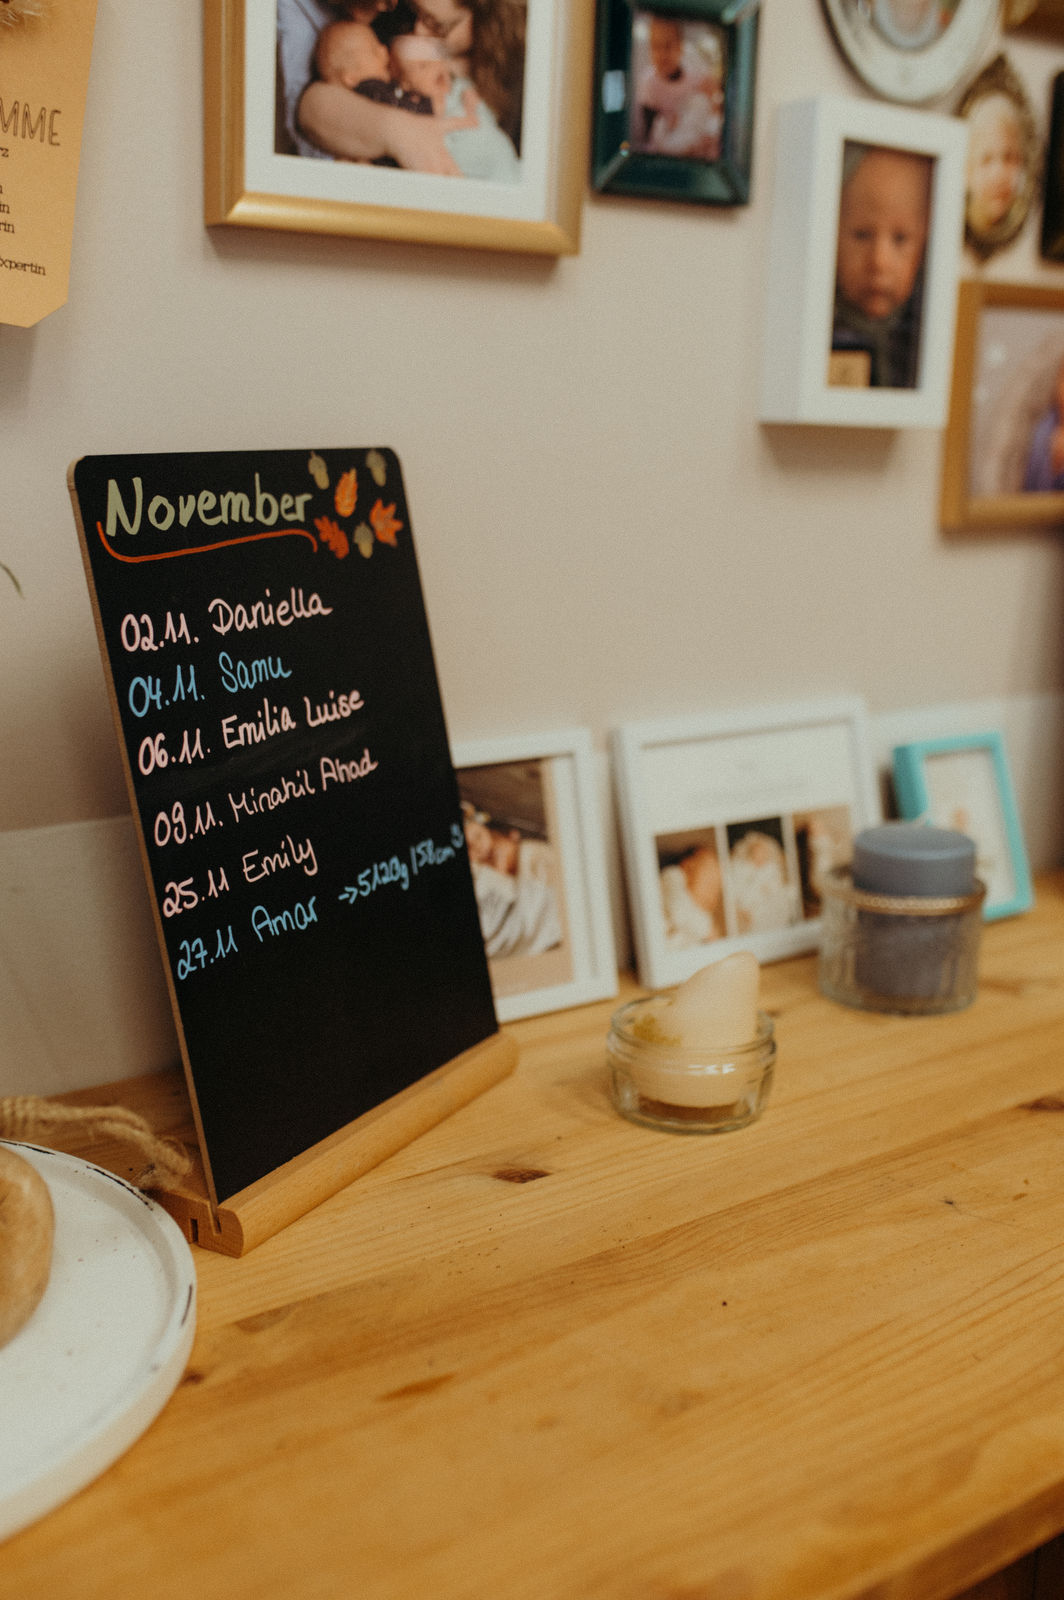 MME
rz
in
rin
xpertin
November
02.11. Daniella
04.11. Samu
06.11. Emilia Luise
09.11. Minahil Ahad
25.11 Emily
27.11 Amar → 5120g / 58cm